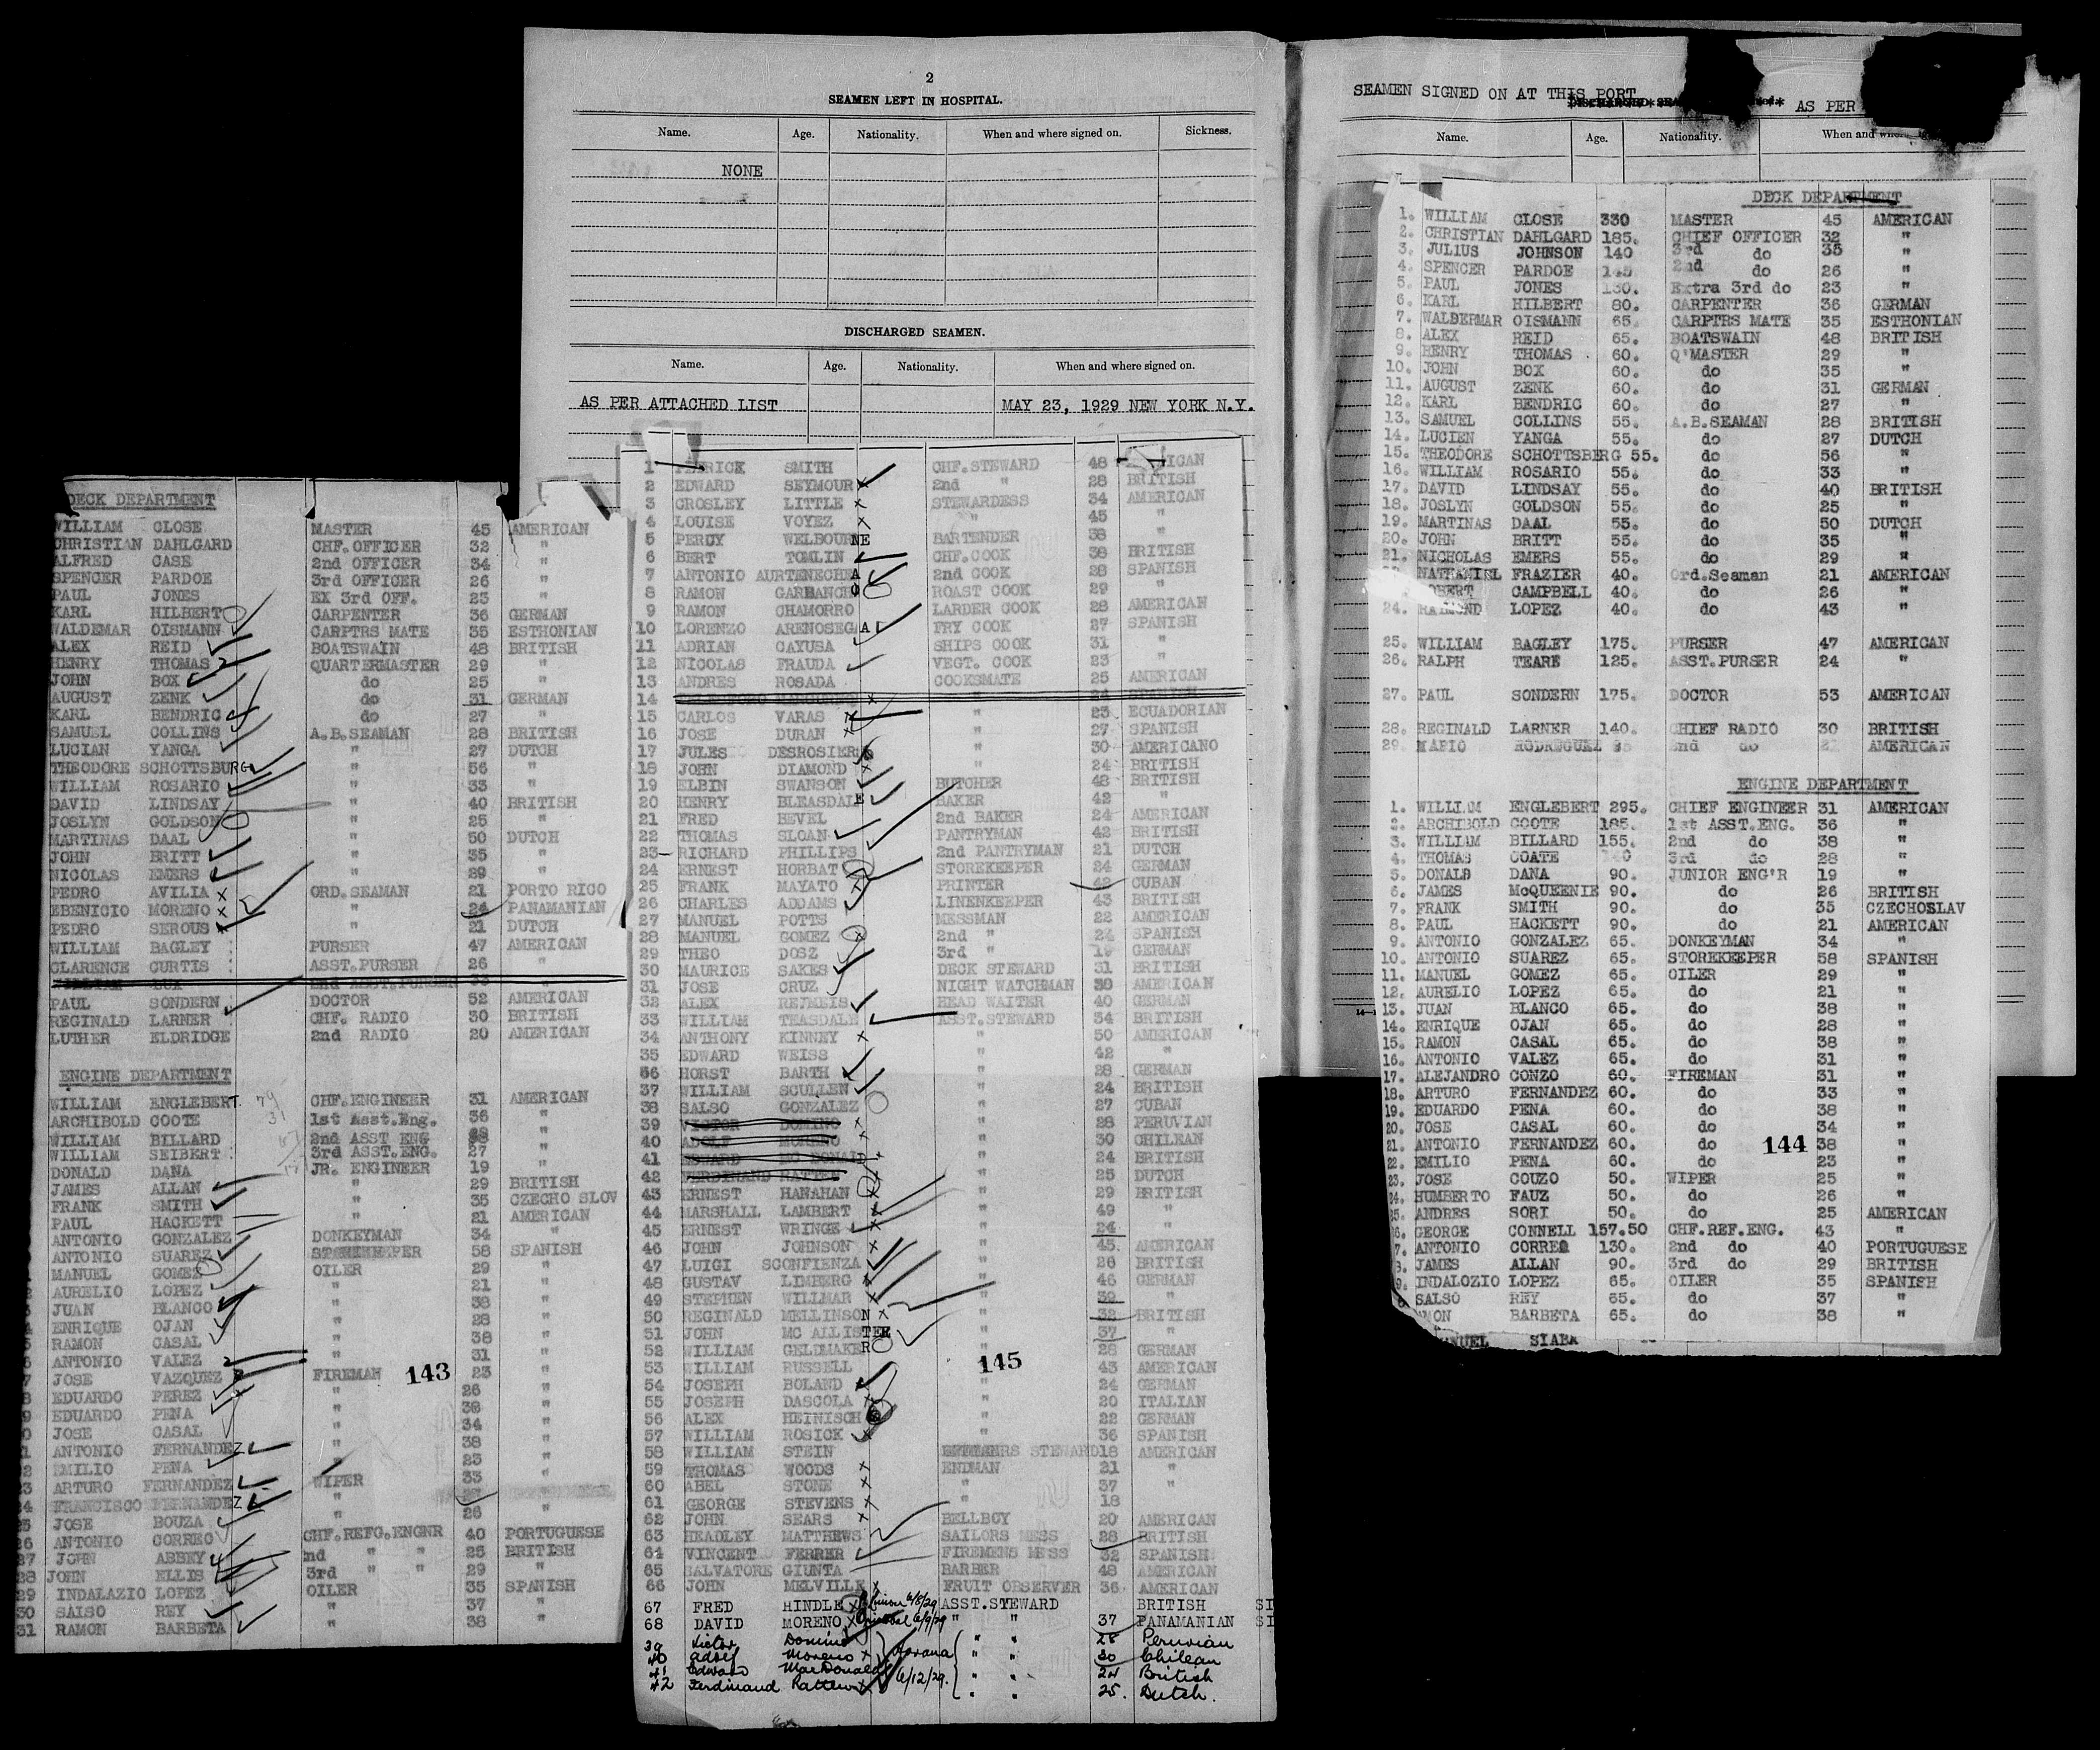 2
SEAMEN LEFT IN HOSPITAL.
Name. Age. Nationality. When and where signed on. Sickness.
NONE
DISCHARGED SEAMEN.
Name. Age. Nationality. When and where signed on.
AS PER ATTACHED LIST MAY 23, 1929 NEW YORK N.Y.
DECK DEPARTMENT
WILLIAM CLOSE MASTER 45 AMERICAN
CHRISTIAN DAHLGARD CHF. OFFICER 32 "
ALFRED CASE 2nd OFFICER 34 "
SPENCER PARDOE 3rd OFFICER 26 "
PAUL JONES EX 3rd OFF. 23 "
KARL HILBERT CARPENTER 36 GERMAN
WALDEMAR OISMANN CARPTRS MATE 35 ESTHONIAN
ALEX REID BOATSWAIN 48 BRITISH
HENRY THOMAS QUARTERMASTER 29 "
JOHN BOX do 25 "
AUGUST ZENK do 31 GERMAN
KARL BENDRIC do 27 "
SAMUEL COLLINS A.B.SEAMAN 28 BRITISH
LUCIAN YANGA " 27 DUTCH
THEODORE SCHOTTSBURG " 56 "
WILLIAM ROSARIO " 33 "
DAVID LINDSAY " 40 BRITISH
JOSLYN GOLDSON " 25 "
MARTINAS DAAL " 50 DUTCH
JOHN BRITT " 35 "
NICOLAS EMERS " 29 "
PEDRO AVILIA ORD.SEAMAN 21 PORTO RICO
EBENICIO MORENO " 24 PANAMANIAN
PEDRO SEROUS " 21 DUTCH
WILLIAM BAGLEY PURSER 47 AMERICAN
CLARENCE CURTIS ASST.PURSER 26 "
PAUL SONDERN DOCTOR 52 AMERICAN
REGINALD LARNER CHF. RADIO 30 BRITISH
LUTHER ELDRIDGE 2nd RADIO 20 AMERICAN
ENGINE DEPARTMENT
WILLIAM ENGLEBERT. CHF.ENGINEER 31 AMERICAN
ARCHIBOLD COOTE 1st Asst.Eng. 36 "
WILLIAM BILLARD 2nd ASST ENG 38 "
WILLIAM SEIBERT 3rd ASST.ENG. 27 "
DONALD DANA JR. ENGINEER 19 "
JAMES ALLAN " 29 BRITISH
FRANK SMITH " 35 CZECHO SLOV
PAUL HACKETT " 21 AMERICAN
ANTONIO GONZALEZ DONKEYMAN 34 "
ANTONIO SUAREZ STOREKEEPER 58 SPANISH
MANUEL GOMEZ OILER 29 "
AURELIO LOPEZ " 21 "
JUAN BLANCO " 38 "
ENRIQUE OJAN " 28 "
RAMON CASAL " 38 "
ANTONIO VALEZ " 31 "
JOSE VAZQUEZ FIREMAN 143 23 "
EDUARDO PEREZ " 26 "
EDUARDO PENA " 38 "
JOSE CASAL " 34 "
ANTONIO FERNANDEZ " 38 "
EMILIO PENA " 23 "
23 ARTURO FERNANDEZ WIPER 33 "
24 FRANCISCO FERNANDEZ "
25 JOSE BOUZA " 26 "
26 ANTONIO CORREO CHF.REFG.ENGNR 40 PORTUGUESE
27 JOHN ABBEY 2nd " " 25 BRITISH
28 JOHN ELLIS 3rd " " 29 "
29 INDALAZIO LOPEZ OILER 35 SPANISH
30 SALSO REY " 37 "
31 RAMON BARBETA " 38 "
1 SMITH CHF.STEWARD 48
2 EDWARD SEYMOUR 2nd " 28 BRITISH
3 CROSLEY LITTLE STEWARDESS 34 AMERICAN
4 LOUISE VOYEZ " 45 "
5 PERCY WELBOURNE BARTENDER 38 "
6 BERT TOMLIN CHF.COOK 38 BRITISH
7 ANTONIO AURTENECHEA 2nd COOK 28 SPANISH
8 RAMON GARBANCHO ROAST COOK 29 "
9 RAMON CHAMORRO LARDER COOK 28 AMERICAN
10 LORENZO ARENOSEGA FRY COOK 27 SPANISH
11 ADRIAN CAYUSA SHIPS COOK 31 "
12 NICOLAS FRAUDA VEGT. COOK 23 "
13 ANDRES ROSADA COOKSMATE 25 AMERICAN
14 " 24 SPANISH
15 CARLOS VARAS " 23 ECUADORIAN
16 JOSE DURAN " 27 SPANISH
17 JULES DESROSIERS " 30 AMERICANO
18 JOHN DIAMOND " 24 BRITISH
19 ELBIN SWANSON BUTCHER 48 BRITISH
20 HENRY BLEASDALE BAKER 42 "
21 FRED BEVEL 2nd BAKER 24 AMERICAN
22 THOMAS SLOAN PANTRYMAN 42 BRITISH
23 RICHARD PHILLIPS 2nd PANTRYMAN 21 DUTCH
24 ERNEST HORBAT STOREKEEPER 24 GERMAN
25 FRANK MAYATO PRINTER 42 CUBAN
26 CHARLES ADDAMS LINENKEEPER 43 BRITISH
27 MANUEL POTTS MESSMAN 22 AMERICAN
28 MANUEL GOMEZ 2nd " 24 SPANISH
29 THEO DOSZ 3rd " 19 GERMAN
30 MAURICE SAKES DECK STEWARD 31 BRITISH
31 JOSE CRUZ NIGHT WATCHMAN 38 AMERICAN
32 ALEX REIMEIS HEAD WAITER 40 GERMAN
33 WILLIAM TEASDALE ASST.STEWARD 34 BRITISH
34 ANTHONY KINNEY " 50 AMERICAN
35 EDWARD WEISS " 42 "
36 HORST BARTH " 28 GERMAN
37 WILLIAM SCULLEN " 24 BRITISH
38 SALSO GONZALEZ " 27 CUBAN
39 VICTOR DOMINO " 28 PERUVIAN
40 ADOLF MORENO " 30 CHILEAN
41 EDWARD MC DONALD " 24 BRITISH
42 FERDINAND RATTEN " 25 DUTCH
43 ERNEST HANAHAN " 29 BRITISH
44 MARSHALL LAMBERT " 49 "
45 ERNEST WRINGE " 24 "
46 JOHN JOHNSON " 45. AMERICAN
47 LUIGI SCONFIENZA " 26 BRITISH
48 GUSTAV LIMBERG " 46 GERMAN
49 STEPHEN WILLMAR " 39 "
50 REGINALD MELLINSON " 32 BRITISH
51 JOHN MC ALLISTER " 37 "
52 WILLIAM GELDMAKER " 28 GERMAN
53 WILLIAM RUSSELL 145 43 AMERICAN
54 JOSEPH BOLAND " 24 GERMAN
55 JOSEPH DASCOLA " 20 ITALIAN
56 ALEX HEINISCH " 22 GERMAN
57 WILLIAM ROSICK " 36 SPANISH
58 WILLIAM STEIN STEWARD 18 AMERICAN
59 THOMAS WOODS ENDMAN 21 "
60 ABEL STONE " 37 "
61 GEORGE STEVENS " 18
62 JOHN SEARS BELLBOY 20 AMERICAN
63 HEADLEY MATTHEWS SAILORS MESS 28 BRITISH
64 VINCENT FERRER FIREMENS MESS 32 SPANISH
65 SALVATORE GIUNTA BARBER 48 AMERICAN
66 JOHN MELVILLE FRUIT OBSERVER 36 AMERICAN
67 FRED HINDLE 6/8/29 ASST.STEWARD BRITISH SI
68 DAVID MORENO Cristobal 6/9/29 " " 37 PANAMANIAN SI
39 Victor Domino " " 28 Peruvian
40 Adolf Moreno Havana " " 30 Chilean
41 Edward MacDonald 6/12/29. " " 24 British
42 Ferdinand Ratten " " 25. Dutch.
SEAMEN SIGNED ON AT THIS PORT AS PER
Name. Age. Nationality. When and where
DECK DEPARTMENT
1. WILLIAM CLOSE 330 MASTER 45 AMERICAN
2. CHRISTIAN DAHLGARD 185. CHIEF OFFICER 32 "
3. JULIUS JOHNSON 140 3rd do 35 "
4. SPENCER PARDOE 145 2nd do 26 "
5. PAUL JONES 130. Extra 3rd do 23 "
6. KARL HILBERT 80. CARPENTER 36 GERMAN
7. WALDERMAR OISMANN 65. CARPTRS MATE 35 ESTHONIAN
8. ALEX REID 65. BOATSWAIN 48 BRITISH
9. HENRY THOMAS 60. Q'MASTER 29 "
10. JOHN BOX 60. do 35 "
11. AUGUST ZENK 60. do 31 GERMAN
12. KARL BENDRIC 60. do 27 "
13. SAMUEL COLLINS 55. A.B.SEAMAN 28 BRITISH
14. LUCIEN YANGA 55. do 27 DUTCH
15. THEODORE SCHOTTSBERG 55. do 56 "
16. WILLIAM ROSARIO 55. do 33 "
17. DAVID LINDSAY 55. do 40 BRITISH
18. JOSLYN GOLDSON 55. do 25 "
19. MARTINAS DAAL 55. do 50 DUTCH
20. JOHN BRITT 55. do 35 "
21. NICHOLAS EMERS 55. do 29 "
NATHANIEL FRAZIER 40. Ord.Seaman 21 AMERICAN
ROBERT CAMPBELL 40. do 26 "
24. RAIMOND LOPEZ 40. do 43 "
25. WILLIAM BAGLEY 175. PURSER 47 AMERICAN
26. RALPH TEARE 125. ASST.PURSER 24 "
27. PAUL SONDERN 175. DOCTOR 53 AMERICAN
28. REGINALD LARNER 140. CHIEF RADIO 30 BRITISH
29. MARIO RODREGUEL 85 2nd do 21 AMERICAN
ENGINE DEPARTMENT
1. WILLIAM ENGLEBERT 295. CHIEF ENGINEER 31 AMERICAN
2. ARCHIBOLD COOTE 185. 1st ASST.ENG. 36 "
3. WILLIAM BILLARD 155. 2nd do 38 "
4. THOMAS COATE 140 3rd do 28 "
5. DONALD DANA 90. JUNIOR ENG'R 19 "
6. JAMES McQUEENIE 90. do 26 BRITISH
7. FRANK SMITH 90. do 35 CZECHOSLAV
8. PAUL HACKETT 90. do 21 AMERICAN
9. ANTONIO GONZALEZ 65. DONKEYMAN 34 "
10. ANTONIO SUAREZ 65. STOREKEEPER 58 SPANISH
11. MANUEL GOMEZ 65. OILER 29 "
12. AURELIO LOPEZ 65. do 21 "
13. JUAN BLANCO 65. do 38 "
14. ENRIQUE OJAN 65. do 28 "
15. RAMON CASAL 65. do 38 "
16. ANTONIO VALEZ 65. do 31 "
17. ALEJANDRO CONZO 60. FIREMAN 31 "
18. ARTURO FERNANDEZ 60. do 33 "
19. EDUARDO PENA 60. do 38 "
20. JOSE CASAL 60. do 34 "
21. ANTONIO FERNANDEZ 60. do 144 38 "
22. EMILIO PENA 60. do 23 "
23. JOSE COUZO 50. WIPER 25 "
24. HUMBERTO FAUZ 50. do 26 "
25. ANDRES SORI 50. do 25 AMERICAN
6. GEORGE CONNELL 157.50 CHF.REF.ENG. 43 "
7. ANTONIO CORREO 130. 2nd do 40 PORTUGUESE
8. JAMES ALLAN 90. 3rd do 29 BRITISH
9. INDALOZIO LOPEZ 65. OILER 35 SPANISH
SALSO REY 65. do 37 "
MON BARBETA 65. do 38 "
NUEL SIABA